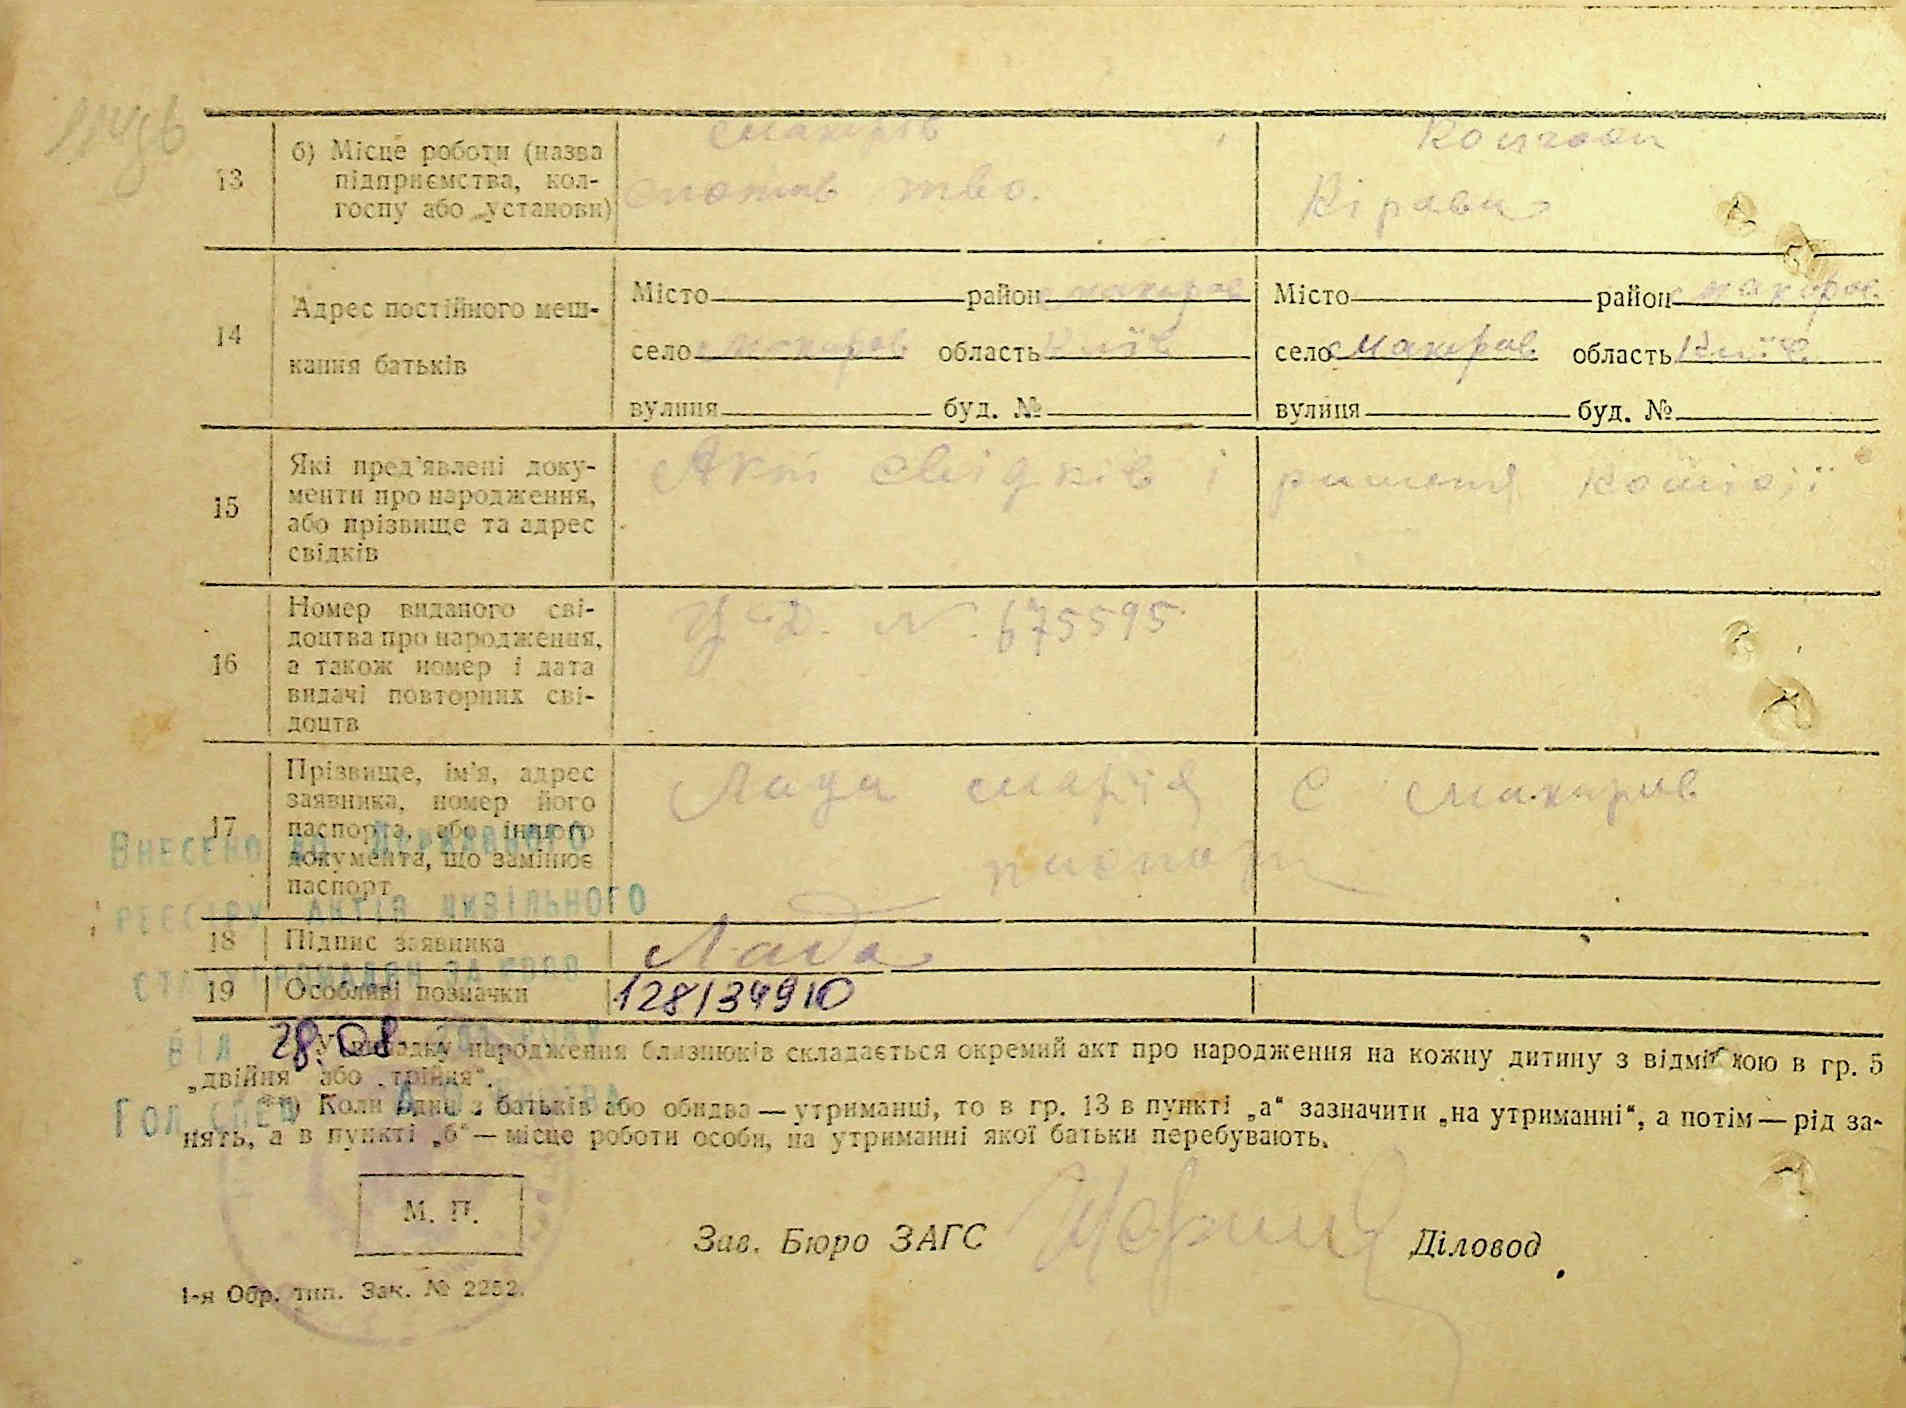 13 б) Місце роботи (назва підприємства, колгоспу або установи)
Макарів
тво.
Колгосп
Кірова
14 Адрес постійного мешкання батьків
Місто район Макарів
село Макарів область Київ
вулиця буд. №
Місто район Макарів
село Макарів область Київ
вулиця буд. №
15 Які пред'явлені документи про народження, або прізвище та адрес свідків
Акт свідків і рішення комісії
16 Номер виданого свідоцтва про народження, а також номер і дата видачі повторних свідоцтв
N. 675595
17 Прізвище, ім'я, адрес заявника, номер його паспорта, або іншого документа, що замінює паспорт
Лада Марія С Макарів
паспорт
18 Підпис заявника
Лада
19 Особливі позначки
128/34910
Внесено до Державного
реєстру актів цивільного
стану громадян за
від 28.08.
Гол. спец
У випадку народження близнюків складається окремий акт про народження на кожну дитину з відміткою в гр. 5
„двійня" або „трійня".
**) Коли один з батьків або обидва — утриманці, то в гр. 13 в пункті „а" зазначити „на утриманні", а потім — рід за-
нять, а в пункті „б" — місце роботи особи, на утриманні якої батьки перебувають.
М. П.
Зав. Бюро ЗАГС
Діловод
1-я Обр. тип. Зак. № 2252.